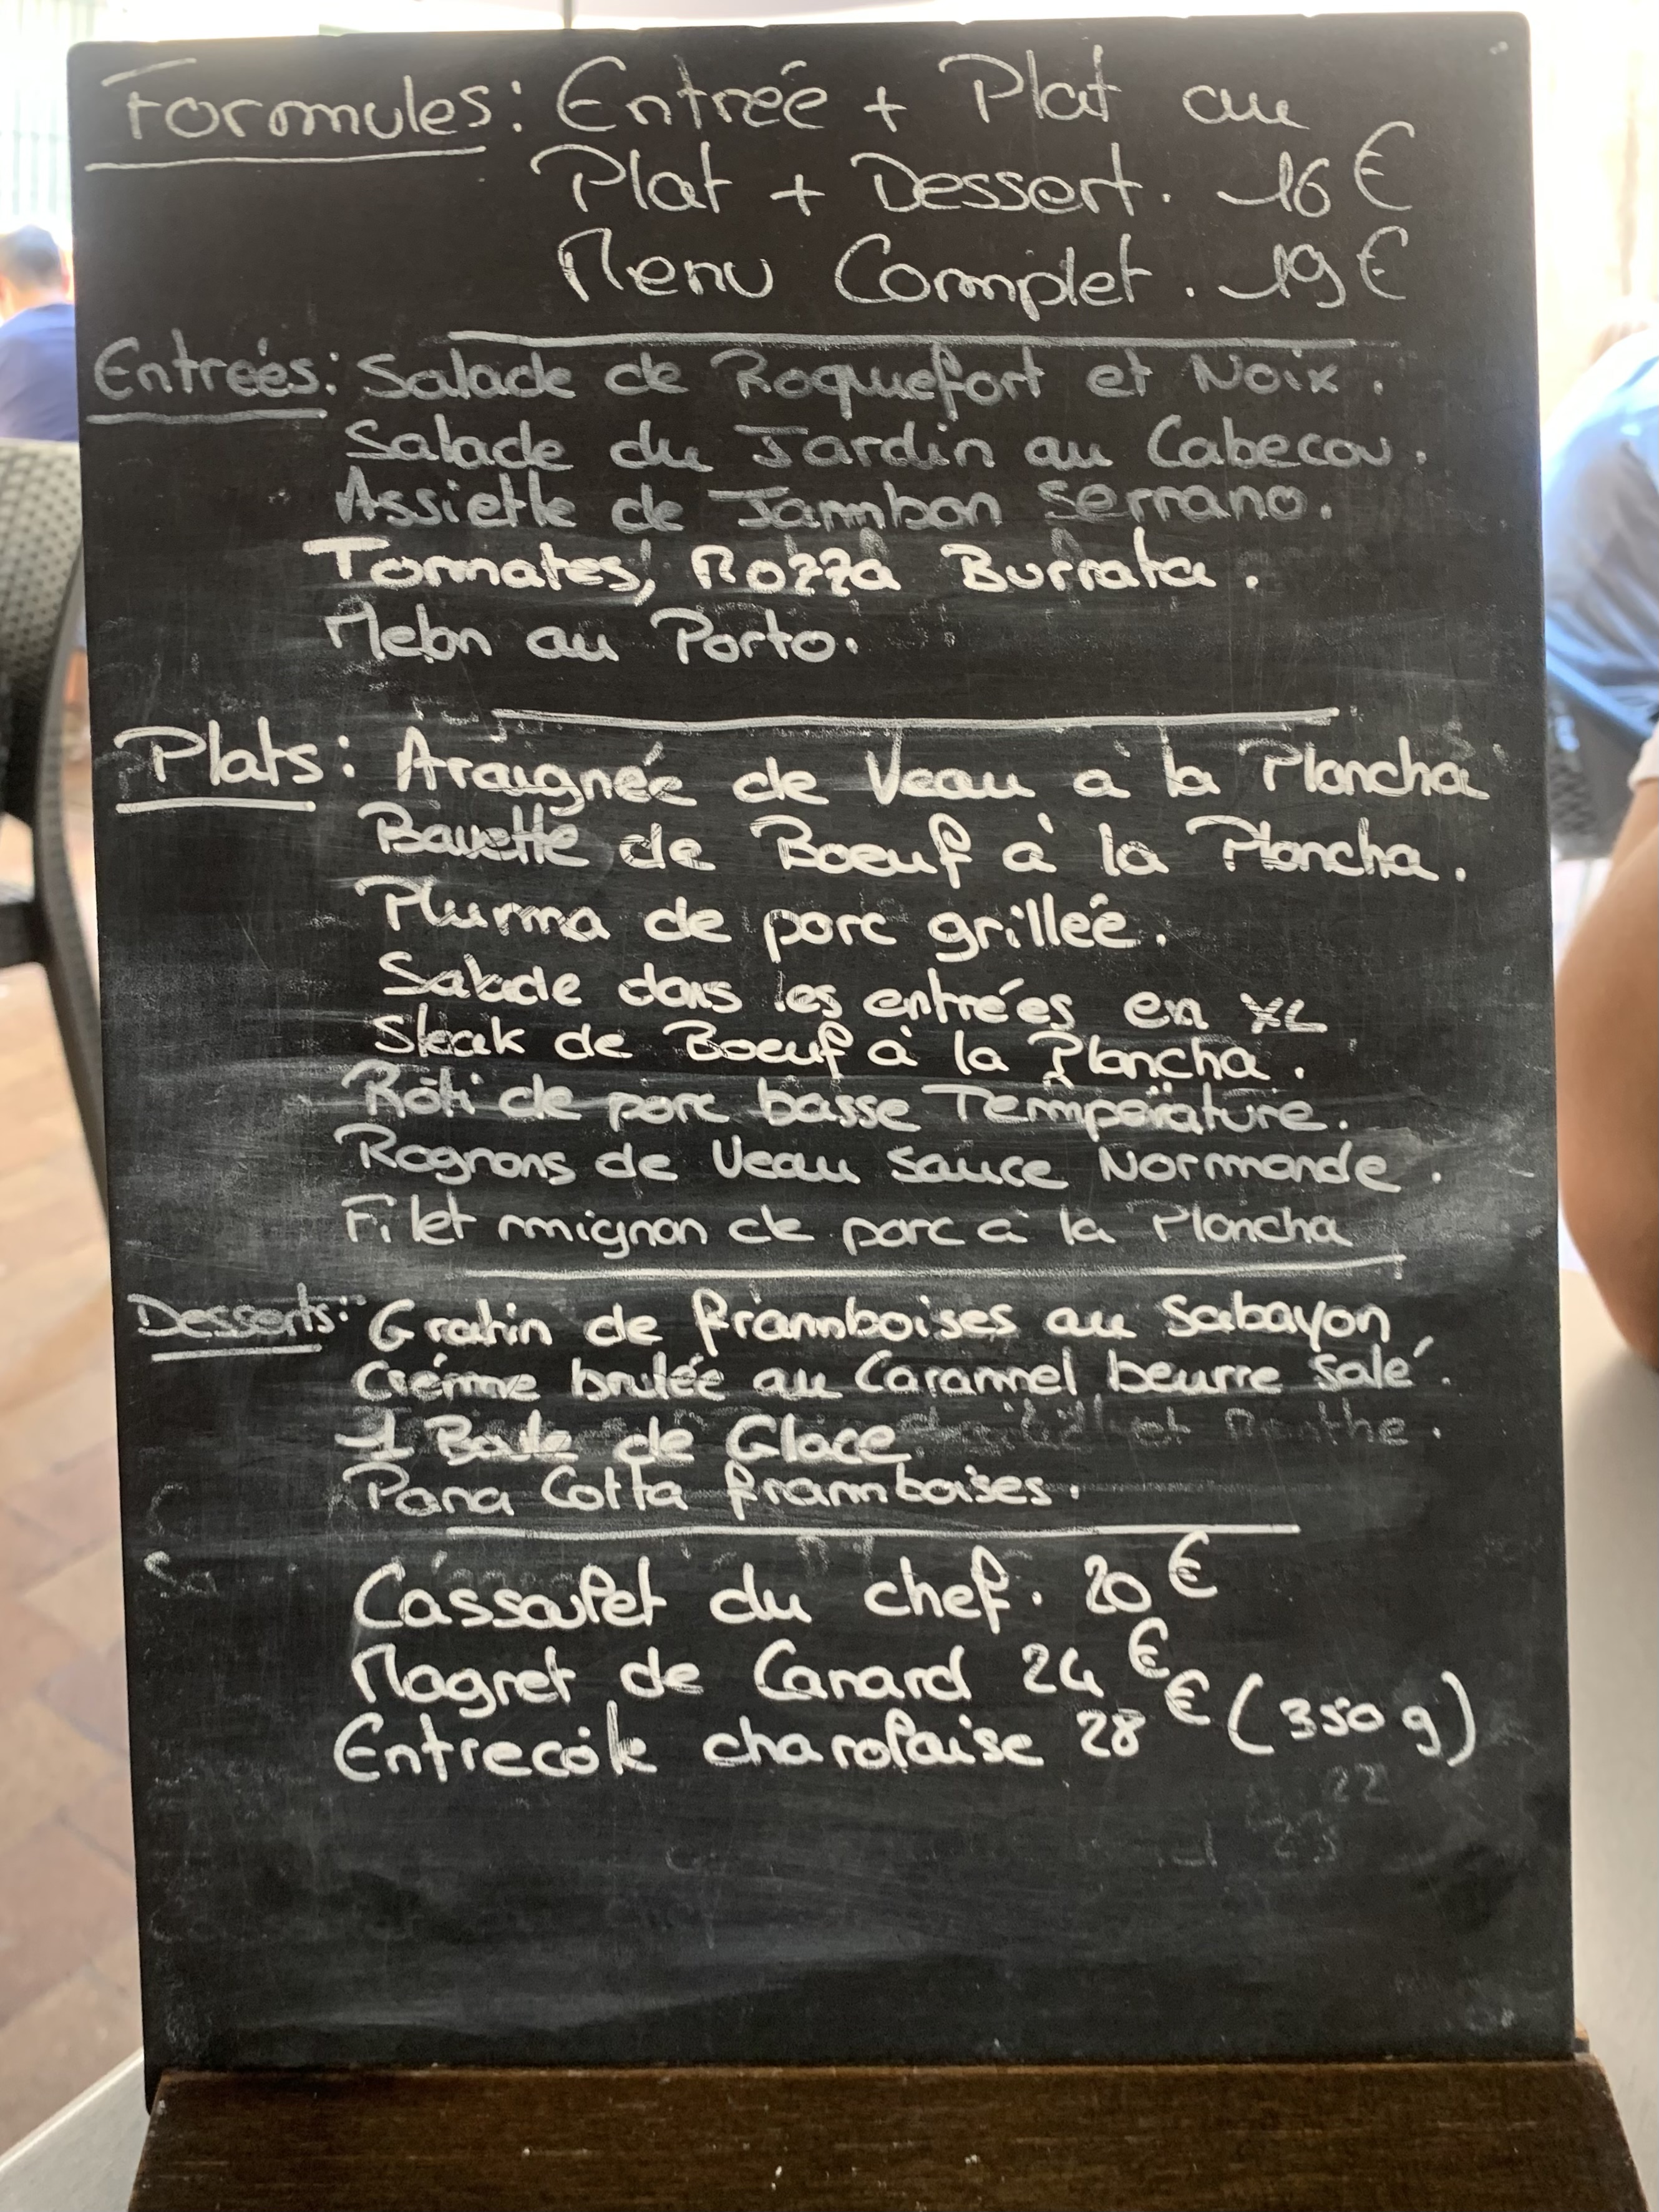 Formules: Entrée + Plat ou
Plat + Dessert. 16 €
Menu Complet. 19 €
Entreés: Salade de Roquefort et Noix.
Salade du Jardin au Cabecou.
Assiette de Jambon Serrano.
Tomates, Mozza Burrata.
Melon au Porto.
Plats: Araignée de Veau à la Plancha
Bavette de Boeuf à la Plancha.
Pluma de porc grilleé.
Salade dans les entrées en XL
Steak de Boeuf à la Plancha.
Rôti de porc basse Température.
Rognons de Veau Sauce Normande.
Filet mignon de porc à la Plancha
Desserts: Gratin de framboises au Sabayon
Créme brulée au Caramel beurre Salé.
1 Boule de Glace
et Menthe.
Pana Cotta framboises.
Cassoulet du chef. 20 €
Magret de Canard 24 €
Entrecôte charolaise 28 € (350 g)
22
23